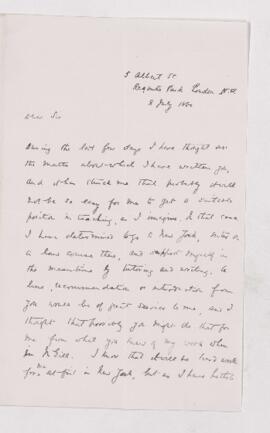 5 Albert St
Regents Park London N.W.
8 July
Dear Sir
During the last few days I have thought on
the matter about which I have written you,
and it has struck me that probably it will
not be so easy for me to get a suitable
position in teaching, as I imagine. In that case
I have determined to go to New York,
a course there, and support myself in
the meantime by tutoring and writing. A
line, recommendation or introduction from
you would be of great service to me, and I
thought that possibly you might do that for
me from what you knew of my work when
in McGill. I know that it will be hard work
for me at first in New York, but as I have